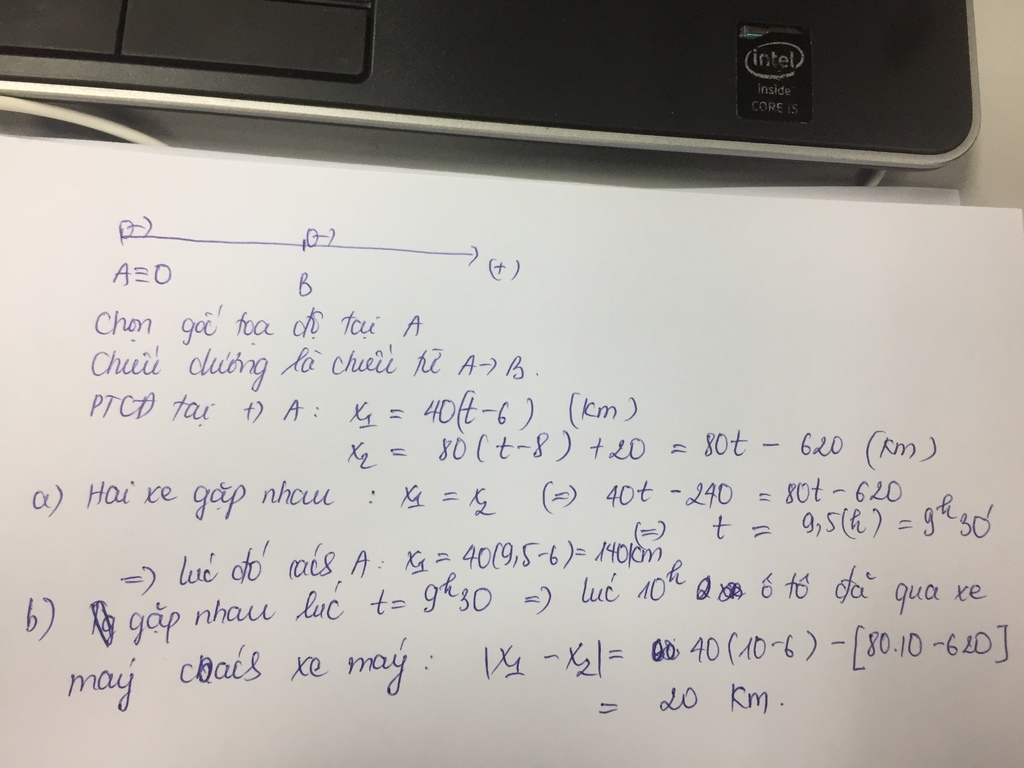 intel
inside
CORE i5
A≡O
B
(+)
Chọn gốc tọa độ tại A
Chiều dương là chiều từ A→B.
PTCĐ tại A: x₁ = 40(t-6) (km)
x₂ = 80(t-8) +20 = 80t - 620 (km)
a) Hai xe gặp nhau : x₁ = x₂ (=) 40t -240 = 80t - 620
(=) t = 9,5(h) = 9ʰ30'
=) lúc đó cách A: x₁ = 40(9,5-6)= 140km
b) gặp nhau lúc t= 9ʰ30 =) lúc 10ʰ ô tô đã qua xe
máy cách xe máy : |x₁ - x₂|= 40(10-6) - [80.10-620]
= 20 km.